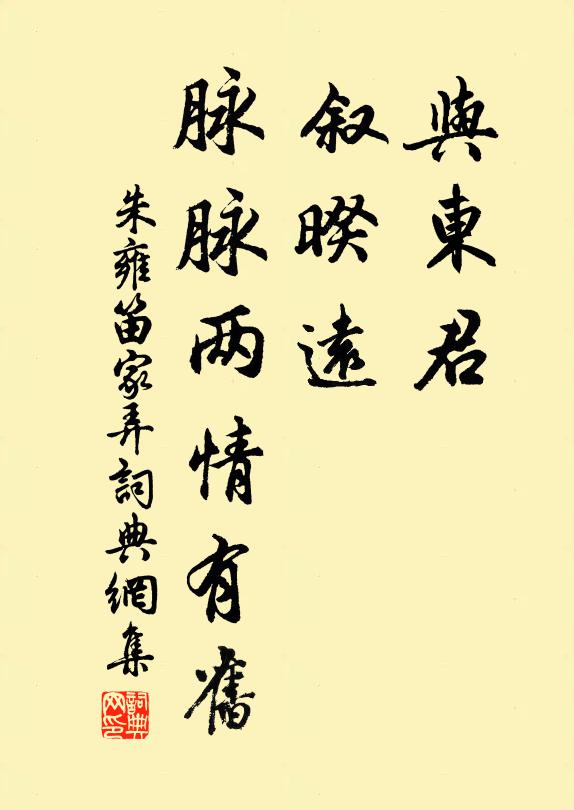 與東君
叙暌遠
脉脉两情有舊
朱雍笛家弄詞典網集
詞典网印